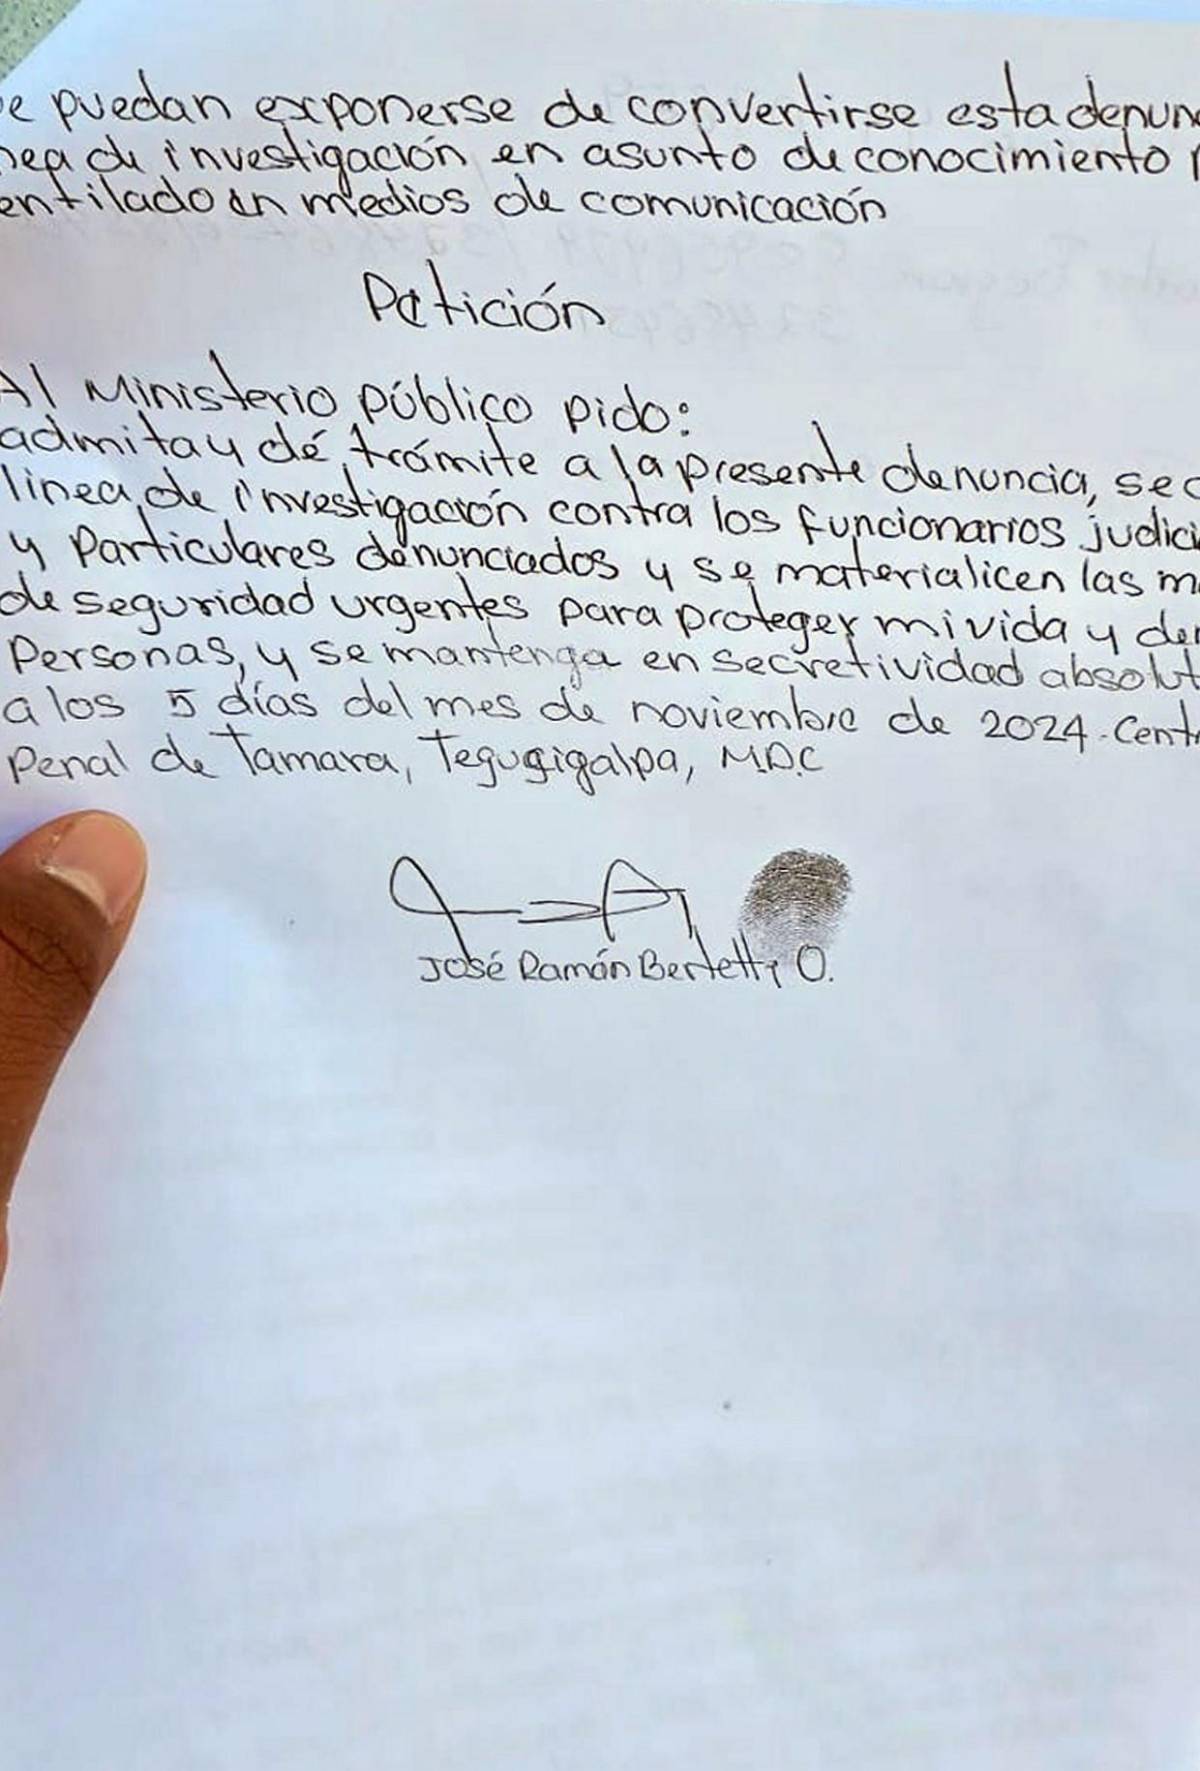 e puedan exponerse de convertirse esta denun
nea de investigación en asunto de conocimiento
entilado en medios de comunicación
Petición
Al Ministerio público pido:
admita y dé trámite a la presente denuncia, se
línea de investigación contra los funcionarios judici
y Particulares denunciados y se materialicen las m
de seguridad urgentes para proteger mi vida y de
Personas, y se mantenga en secretividad absolut
a los 5 días del mes de noviembre de 2024. Cent
Penal de Tamara, Tegugigalpa, M.D.C
José Ramón Bertetti O.